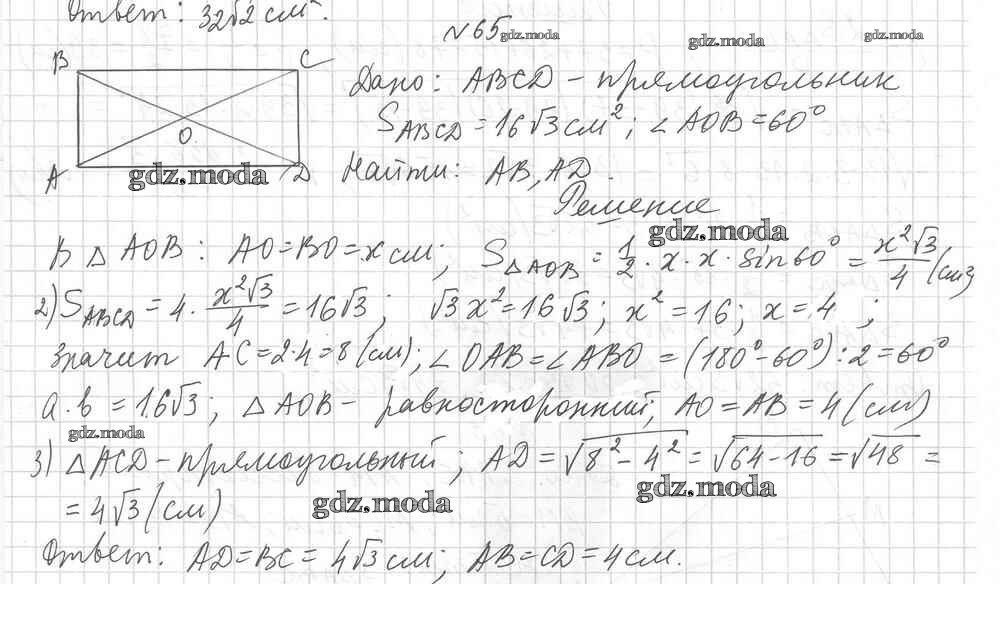 Ответ: 32√2 см².
№65 gdz.moda
gdz.moda gdz.moda
B C
Дано: ABCD – прямоугольник
S_ABCD = 16√3 см²; ∠AOB = 60°
O
A D gdz.moda
Найти: AB, AD.
Решение
gdz.moda
В △ AOB: AO = BO = x см; S_△AOB = 1/2 · x · x · sin 60° = x²√3/4 (см)
2) S_ABCD = 4 · x²√3/4 = 16√3; √3 x² = 16√3; x² = 16; x = 4;
Значит AC = 2·4 = 8 (см); ∠OAB = ∠ABO = (180° - 60°) : 2 = 60°
a · b = 16√3; △ AOB – равносторонний; AO = AB = 4 (см)
gdz.moda
3) △ ACD – прямоугольный; AD = √8² - 4² = √64 - 16 = √48 =
= 4√3 (см)
gdz.moda gdz.moda
Ответ: AD = BC = 4√3 см; AB = CD = 4 см.